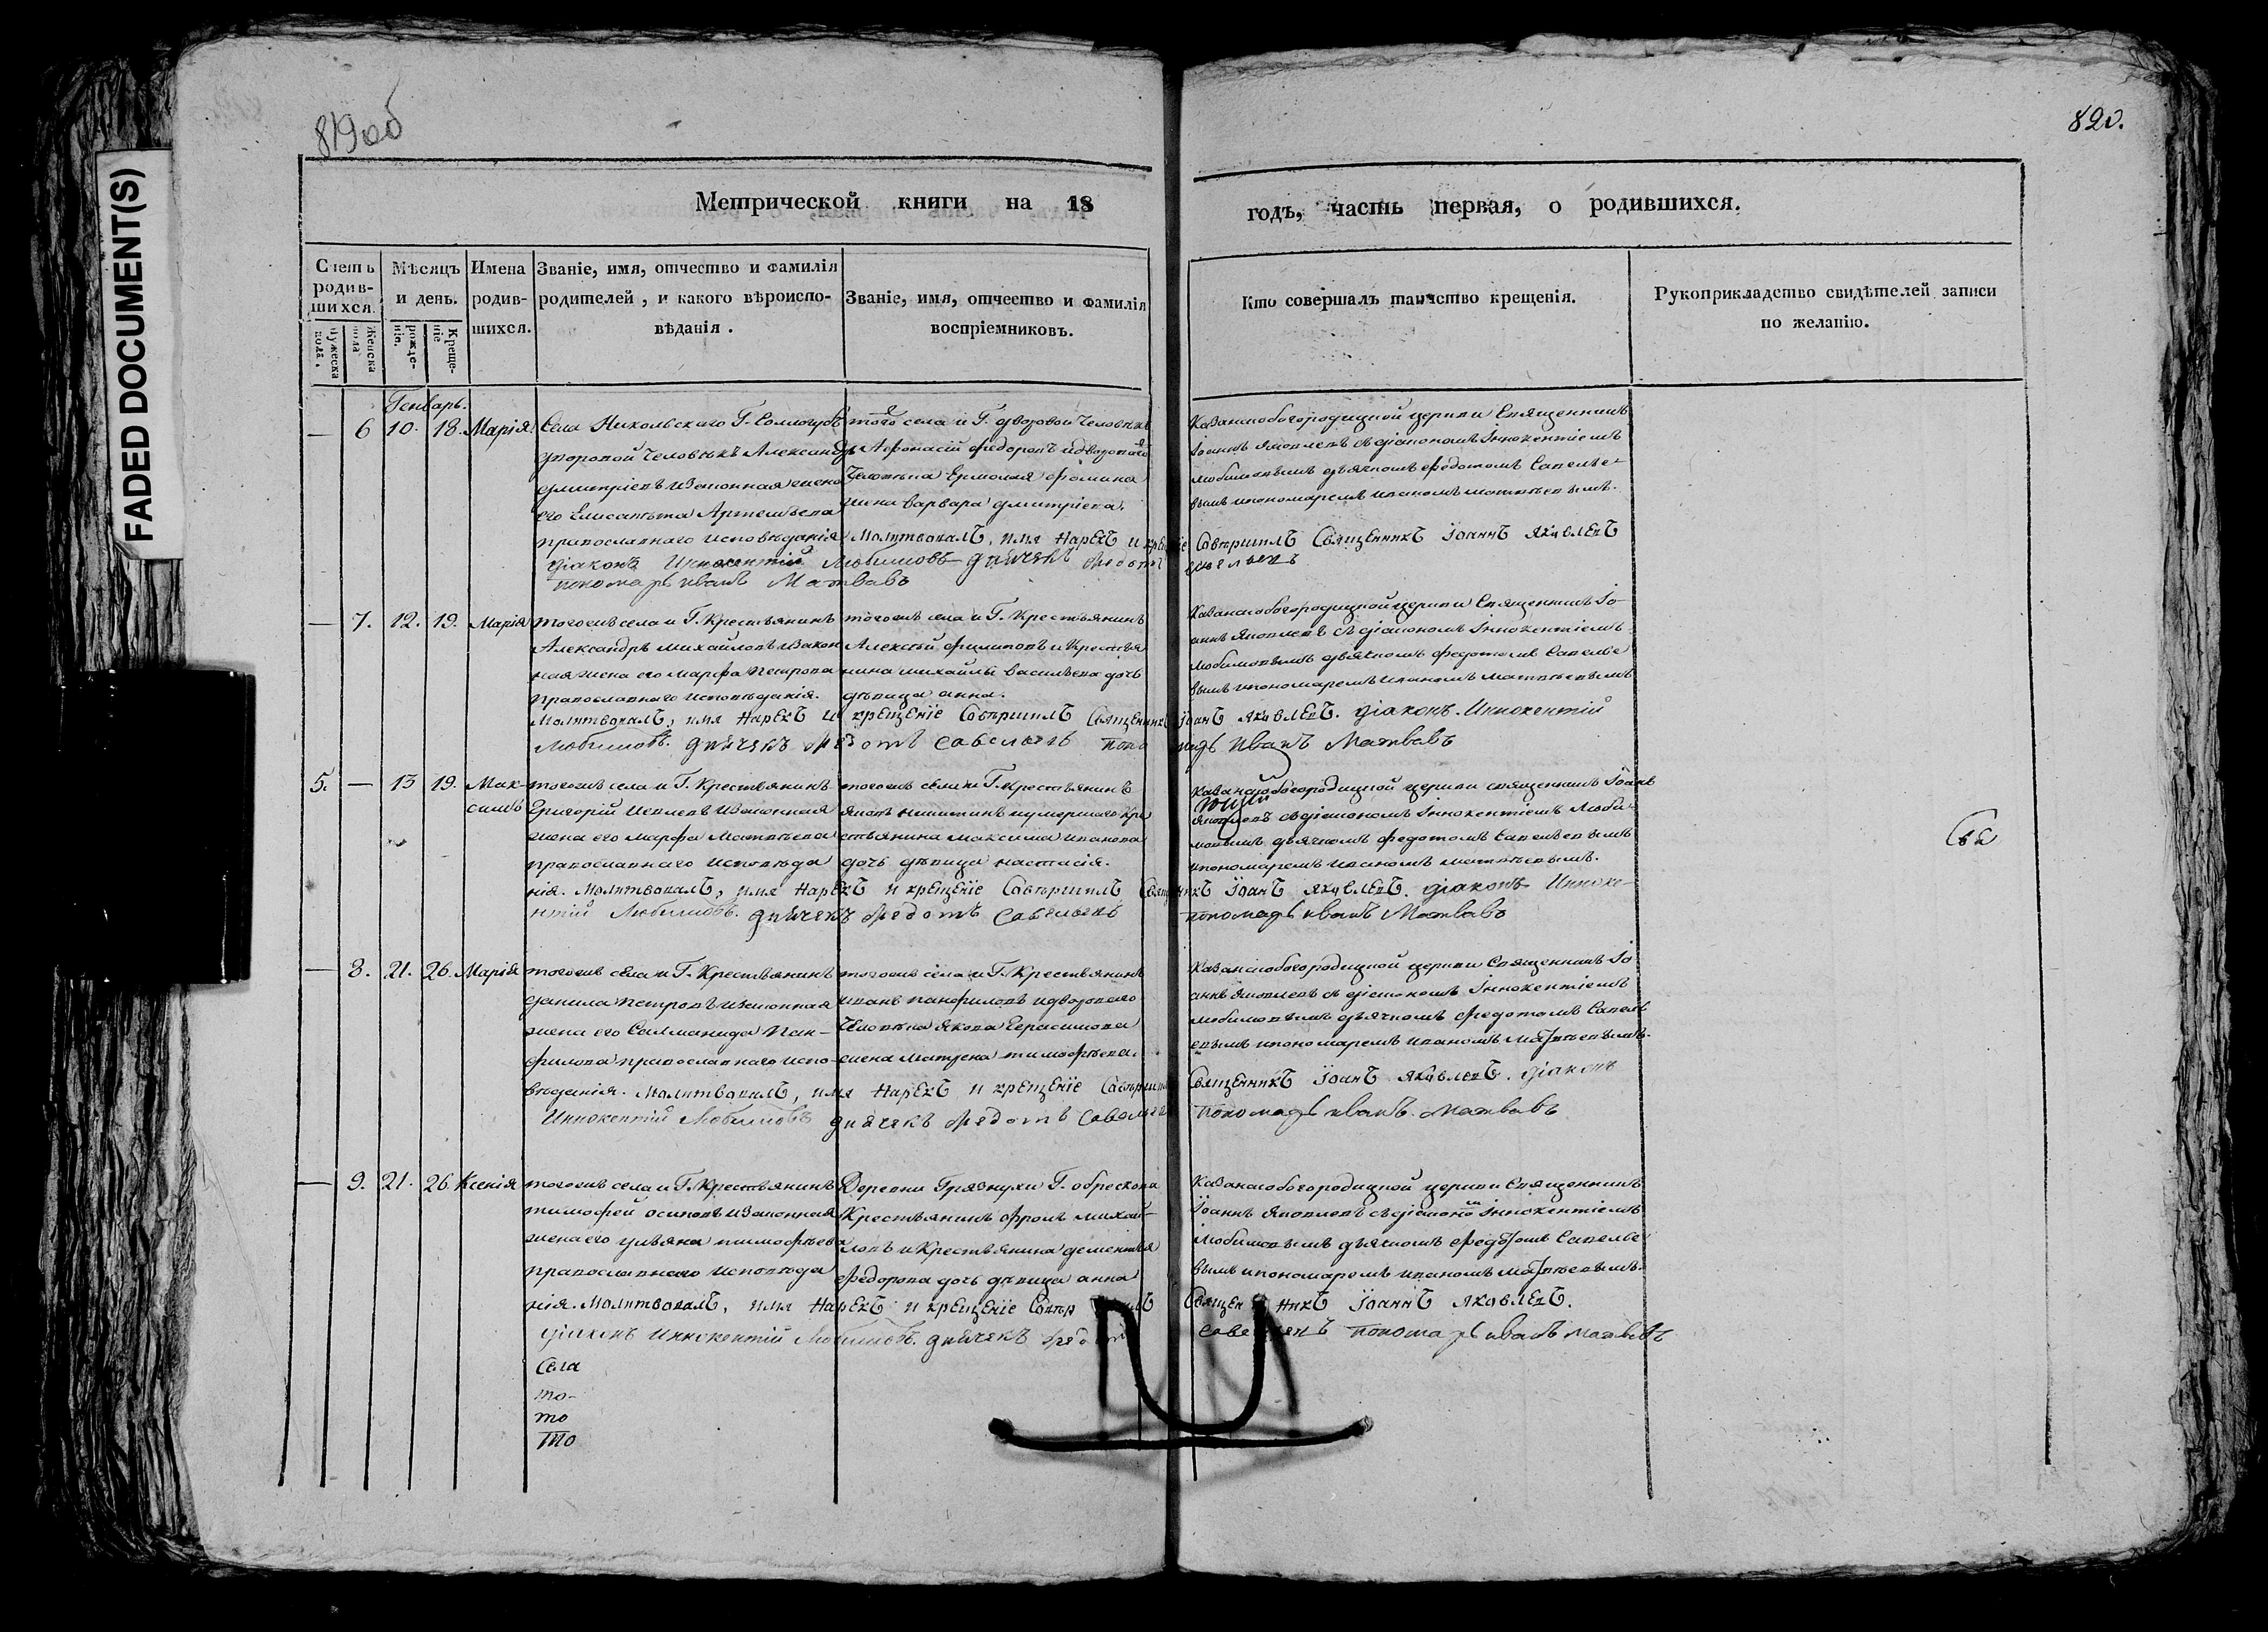 819об
820.
FADED DOCUMENT(S)
Метрической книги на 18
годъ, часть первая, о родившихся.
Счетъ родив-шихся.
Мѣсяцъ и день.
Имена родив-шихся.
Званіе, имя, отчество и фамилія родителей, и какого вѣроиспо-вѣданія.
Званіе, имя, отчество и фамилія воспріемниковъ.
Кто совершалъ таинство крещенія.
Рукоприкладство свидѣтелей записи по желанію.
мужеска пола.
женска пола
рожде-нія.
Креще-ніе
Генварь.
— 6 10. 18. Марія
Села Никольскаго Г.
дворовой человѣкъ Александръ
дмитріевъ изаконная жена
его Елисавета Артемьева
православнаго исповѣданія
того села и Г. дворовой человѣкъ
Афонасій федоровъ идворопаго
человѣка Ермолая фомина
жена варвара дмитріева.
Казанскобогородицкой церкви Священникъ
Іоаннъ Яковлевъ съ діакономъ Іннокентіемъ
любимовымъ дьячкомъ федотомъ Савелье-
вымъ ипономаремъ иваномъ матвѣевымъ.
Молитвовалъ, имя нарекъ и крещеніе Совершилъ Священникъ Іоаннъ Яковлевъ
діаконъ Иннокентій Любимовъ дьячекъ Федотъ Савельевъ
пономарь иванъ Матвѣвъ
— 7. 12. 19. Марія
тогожъ села и Г. Крестьянинъ
Александръ михайловъ изакон
ная жена его марфа петрова
православнаго исповѣданія.
тогожъ села и Г. Крестьянинъ
Алексѣй филиповъ и крестья
нина михайлы васильева дочь
дѣвица анна.
Казанскобогородицкой церкви Священникъ Іо-
аннъ Яковлевъ съ діакономъ Іннокентіемъ
любимовымъ дьячкомъ федотомъ Савелье
вымъ ипономаремъ иваномъ матвѣевымъ
Молитвовалъ, имя нарекъ и крещеніе Совершилъ Священникъ Іоанъ Яковлевъ. діаконъ. Иннокентій
Любимовъ. дьячекъ Федотъ савельевъ пономарь Иванъ Матвѣвъ
5. — 13 19. Мак-
симъ
тогожъ села и Г. Крестьянинъ
Григорій Иевлевъ изаконная
жена его марфа Матвѣева
православнаго исповѣда
тогожъ села и Г. крестьянинъ
яковъ никитинъ иумершаго кре
стьянина максима иванова
дочь дѣвица настасія.
Казанскобогородицкой церкви священникъ Іоанъ
Яковлевъ съдіакономъ Іннокентіемъ Люби-
мовымъ дьячкомъ федотомъ Савельевымъ
ипономаремъ иваномъ матвѣевымъ.
нія. Молитвовалъ, имя нарекъ и крещеніе Совершилъ Священникъ Іоанъ Яковлевъ. діаконъ Инноке-
нтій Любимовъ. дьячекъ Федотъ Савельевъ пономарь иванъ Матвѣвъ
— 8. 21. 26. Марія
тогожъ села и Г. Крестьянинъ
данила петровъ изаконная
жена его Саломанида Пан-
филова православнаго испо-
тогожъ села и Г. Крестьянинъ
иванъ панфиловъ идворопаго
человѣка якова Герасимова
жена матрена тимофѣева.
Казанскобогородицкой церкви Священникъ Іо
аннъ Яковлевъ съ діакономъ Іннокентіемъ
любимовымъ дьячкомъ федотомъ Савель
евымъ ипономаремъ иваномъ матвѣевымъ.
вѣданія. Молитвовалъ, имя нарекъ и крещеніе Совершилъ Священникъ Іоанъ Яковлевъ. діаконъ
Иннокентій Любимовъ дьячекъ Федотъ Савельевъ пономарь иванъ. Матвѣвъ
— 9. 21. 26. Ксенія
тогожъ села и Г. Крестьянинъ
тимофей осиповъ изаконная
жена его ульяна тимофѣева
православнаго исповѣда
Деревни Грязнухи Г. обрескова
Крестьянинъ фролъ михай-
ловъ и Крестьянина дементья
федорова дочь дѣвица анна
Казанскобогородицкой церкви Священникъ
Іоаннъ Яковлевъ съдіакономъ Іннокентіемъ
любимовымъ дьячкомъ федотомъ Савелье
вымъ ипономаремъ иваномъ матвѣевымъ.
нія. Молитвовалъ, имя нарекъ и крещеніе Совершилъ Священникъ Іоаннъ Яковлевъ.
діаконъ Иннокентій Любимовъ. дьячекъ Федотъ савельевъ пономарь иванъ матвѣвъ
Села
то-
то
то